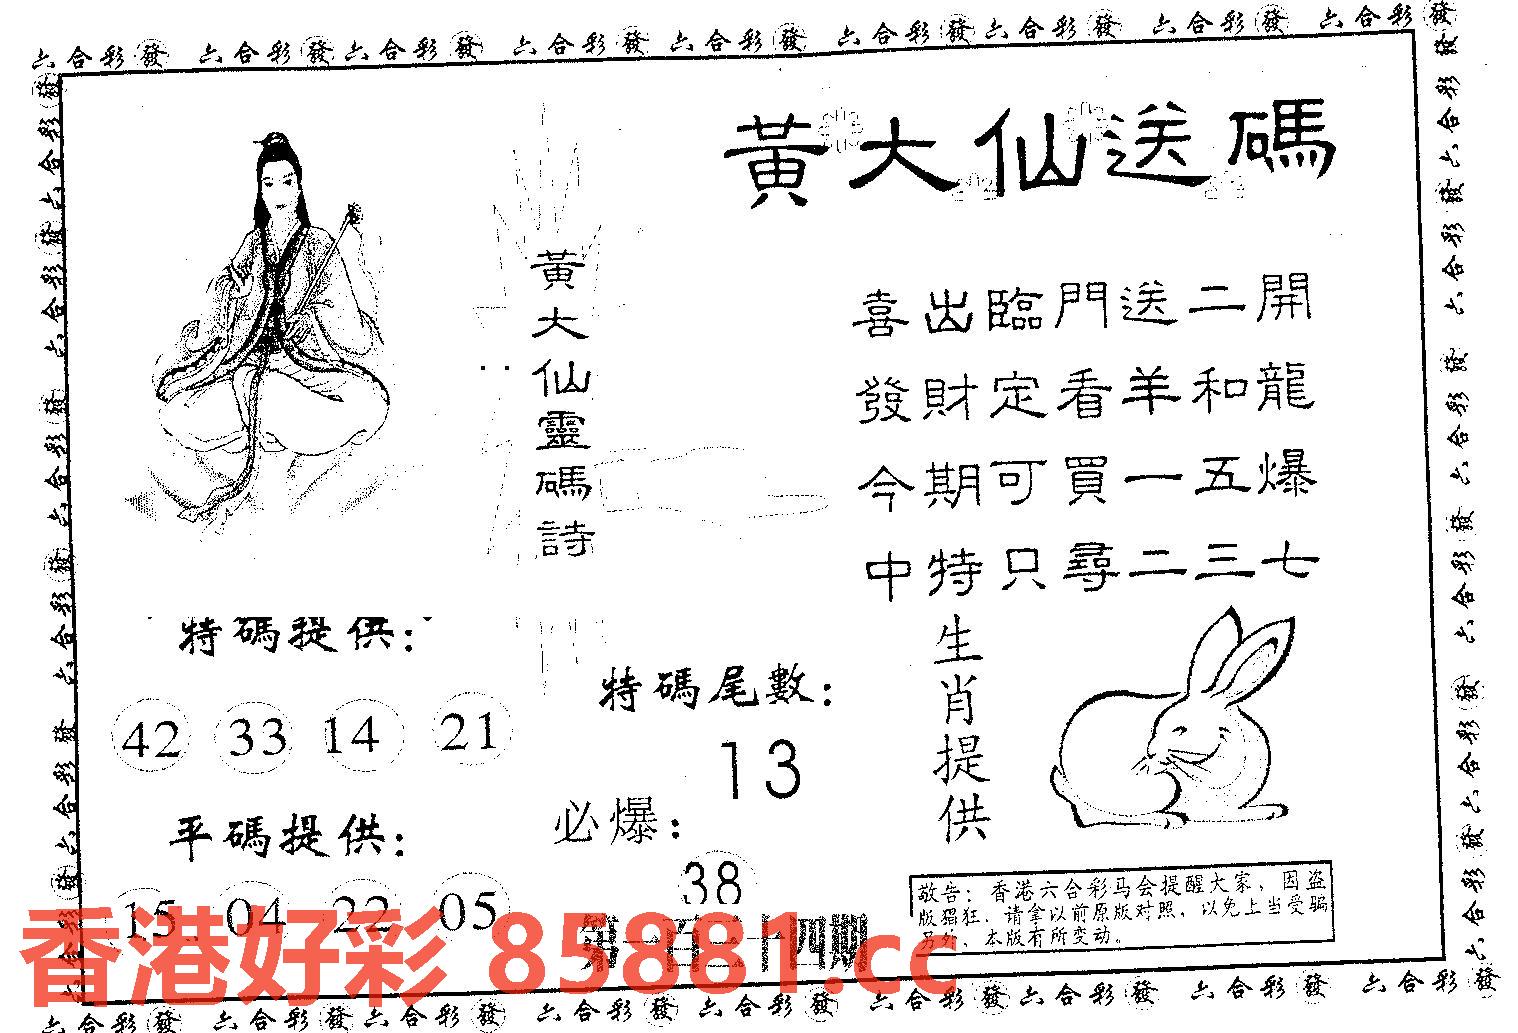 六合彩發 六合彩發 六合彩發 六合彩發 六合彩發 六合彩發 六合彩發 六合彩發 六合彩發
黃大仙送碼
黃大仙靈碼詩
喜出臨門送二開
發財定看羊和龍
今期可買一五爆
中特只尋二三七
特碼提供:
42 33 14 21
平碼提供:
15 04 22 05
特碼尾數:
13
必爆:
38
生肖提供
敬告: 香港六合彩马会提醒大家, 因盗
版猖狂, 请拿以前原版对照, 以免上当受骗
另外, 本版有所变动。
第一百三十四期
香港好彩 85881.cc
六合彩發 六合彩發 六合彩發 六合彩發 六合彩發 六合彩發 六合彩發 六合彩發 六合彩發